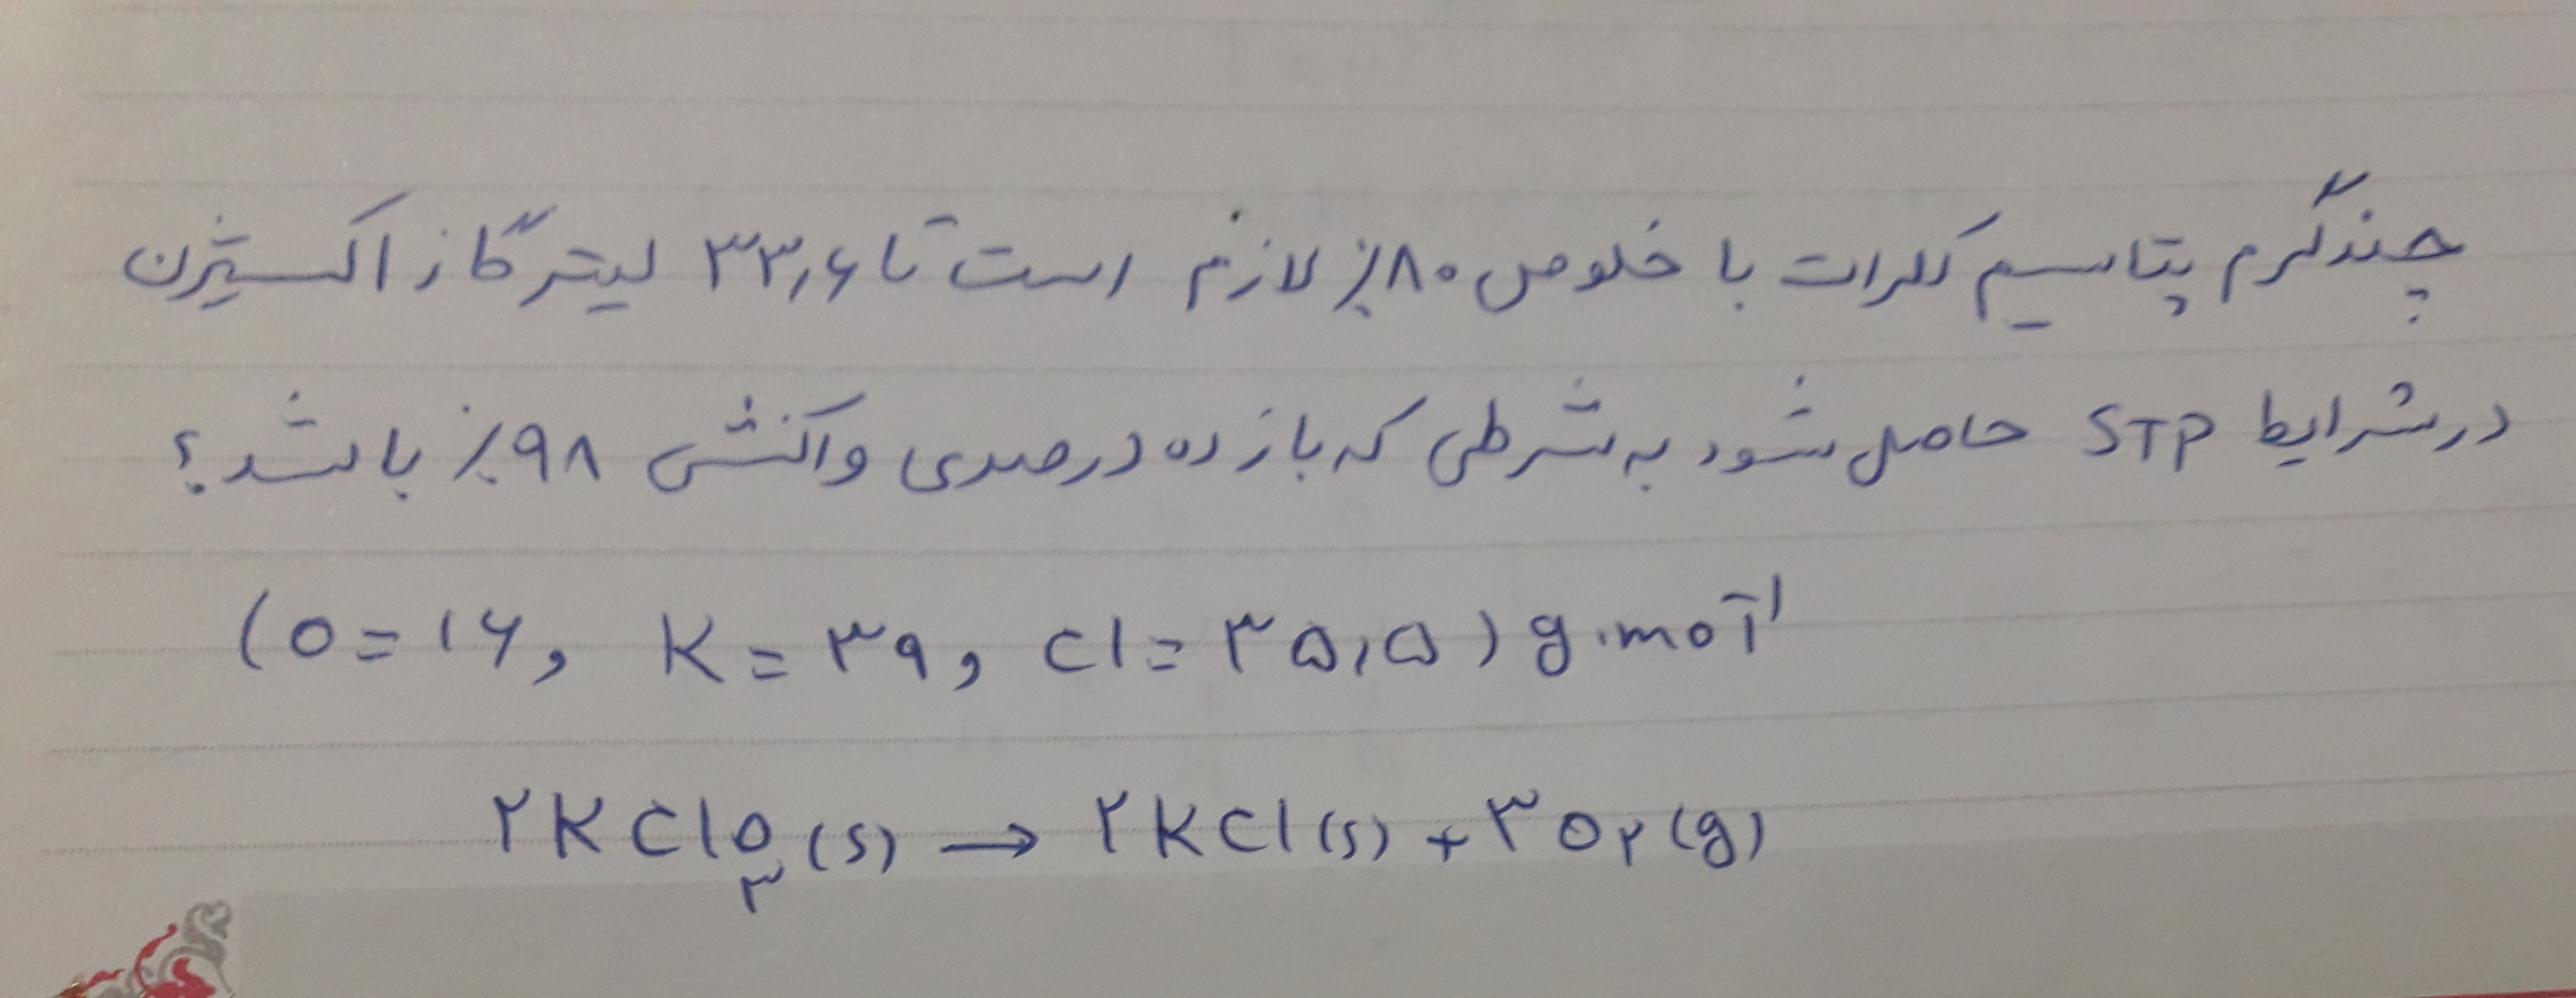 چندگرم پتاسیم کلرات با خلوص ۸۰٪ لازم است تا ۳۳٫۶ لیتر گاز اکسیژن
در شرایط STP حاصل شود به شرطی که بازده درصدی واکنش ۹۸٪ باشد؟
(O=۱۶, K=۳۹, Cl=۳۵٫۵) g.mol⁻¹
۲KClO₃(s) → ۲KCl(s) + ۳O₂(g)